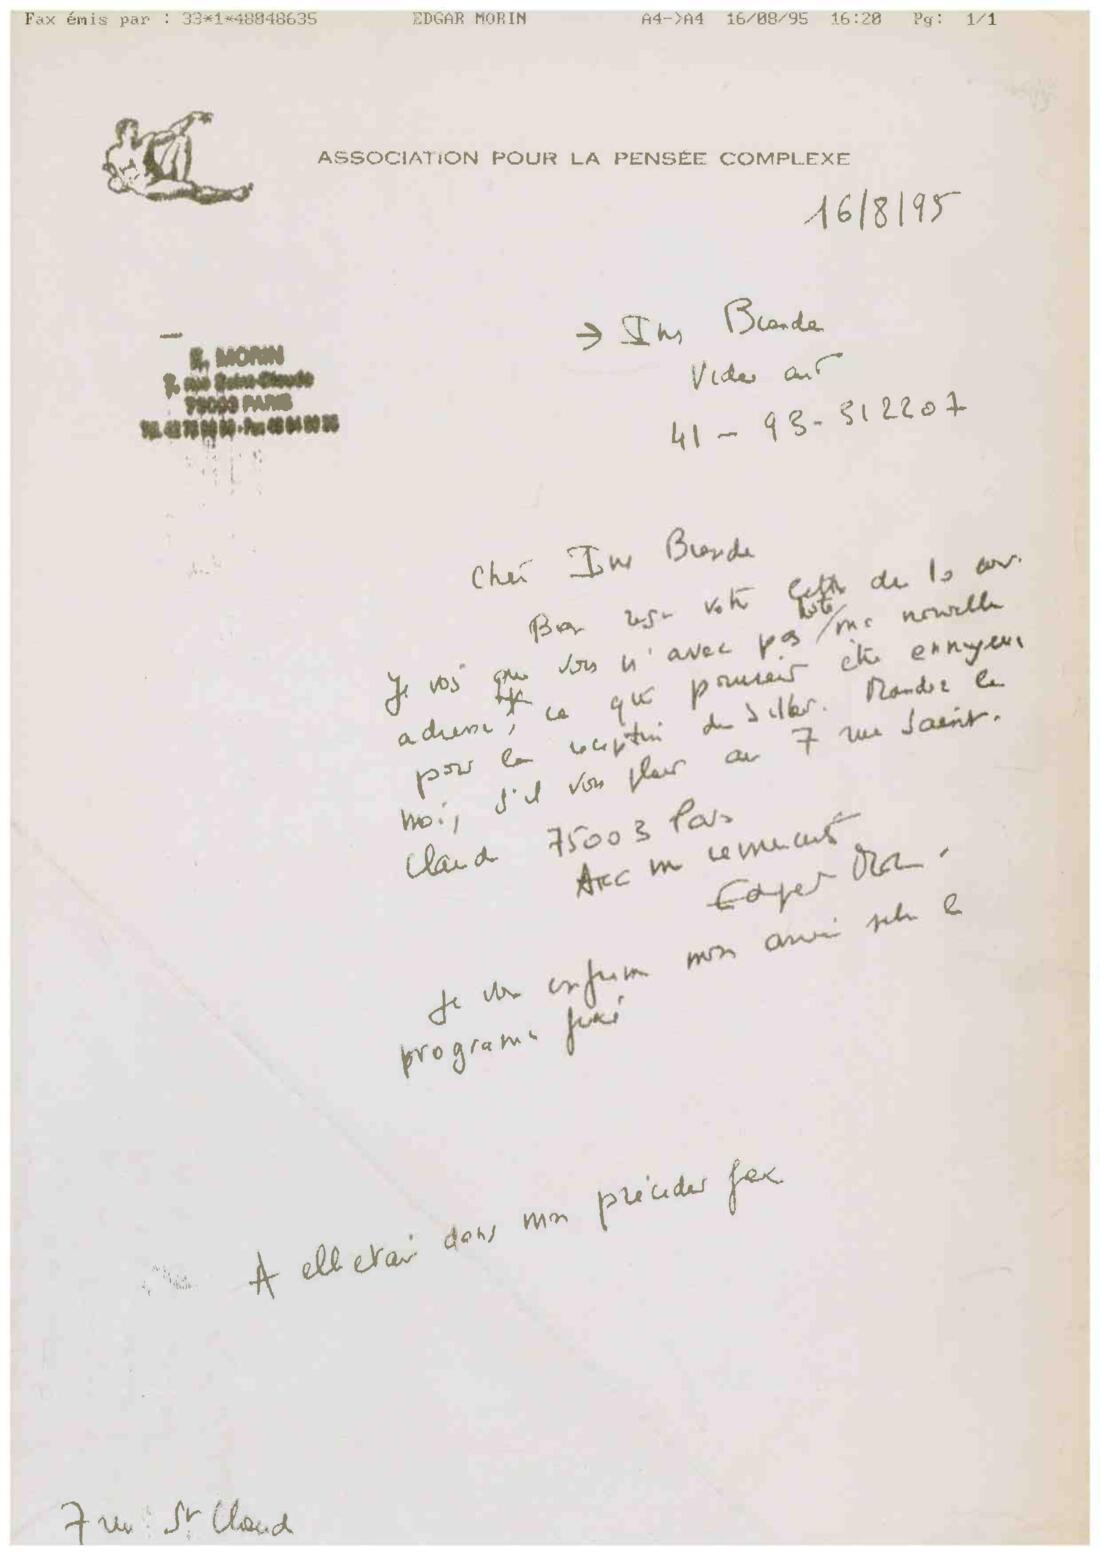 Fax émis par : 33*1*48048635 EDGAR MORIN A4->A4 16/08/95 16:20 Pg: 1/1
ASSOCIATION POUR LA PENSÉE COMPLEXE
16/8/95
E. MORIN
7, rue Saint-Claude
75003 PARIS
→
Video art
41 - 93-312207
Cher
Bien reçu votre lettre du 10 aoû.
Je vois que vous n'avez pas noté ma nouvelle
adresse, ce qui pourrait être ennuyeux
pour la réception du billet. Mandez le
moi, s'il vous plait au 7 rue Saint-
Claude 75003 Paris
Avec mes remerciements
Edgar Morin.
Je vous confirme mon arrivée selon le
programme fixé
* elle était dans mon précédent fax
7 rue St Claude